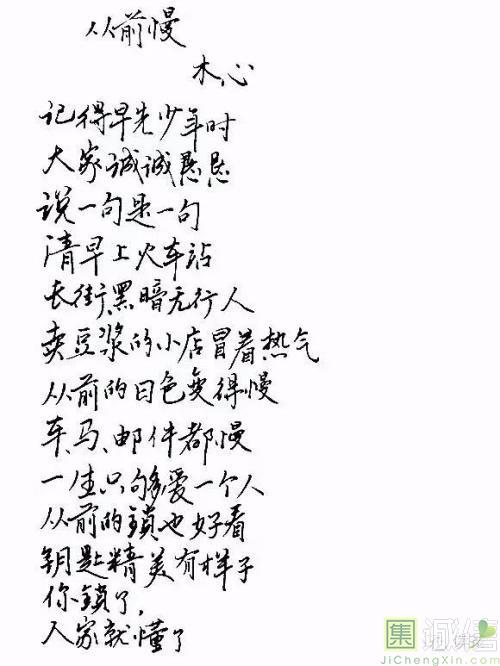 从前慢
木心
记得早先少年时
大家诚诚恳恳
说一句是一句
清早上火车站
长街黑暗无行人
卖豆浆的小店冒着热气
从前的日色变得慢
车、马、邮件都慢
一生只够爱一个人
从前的鎖也好看
钥匙精美有样子
你鎖了,
人家就懂了
集诚信
JiChengXin.com